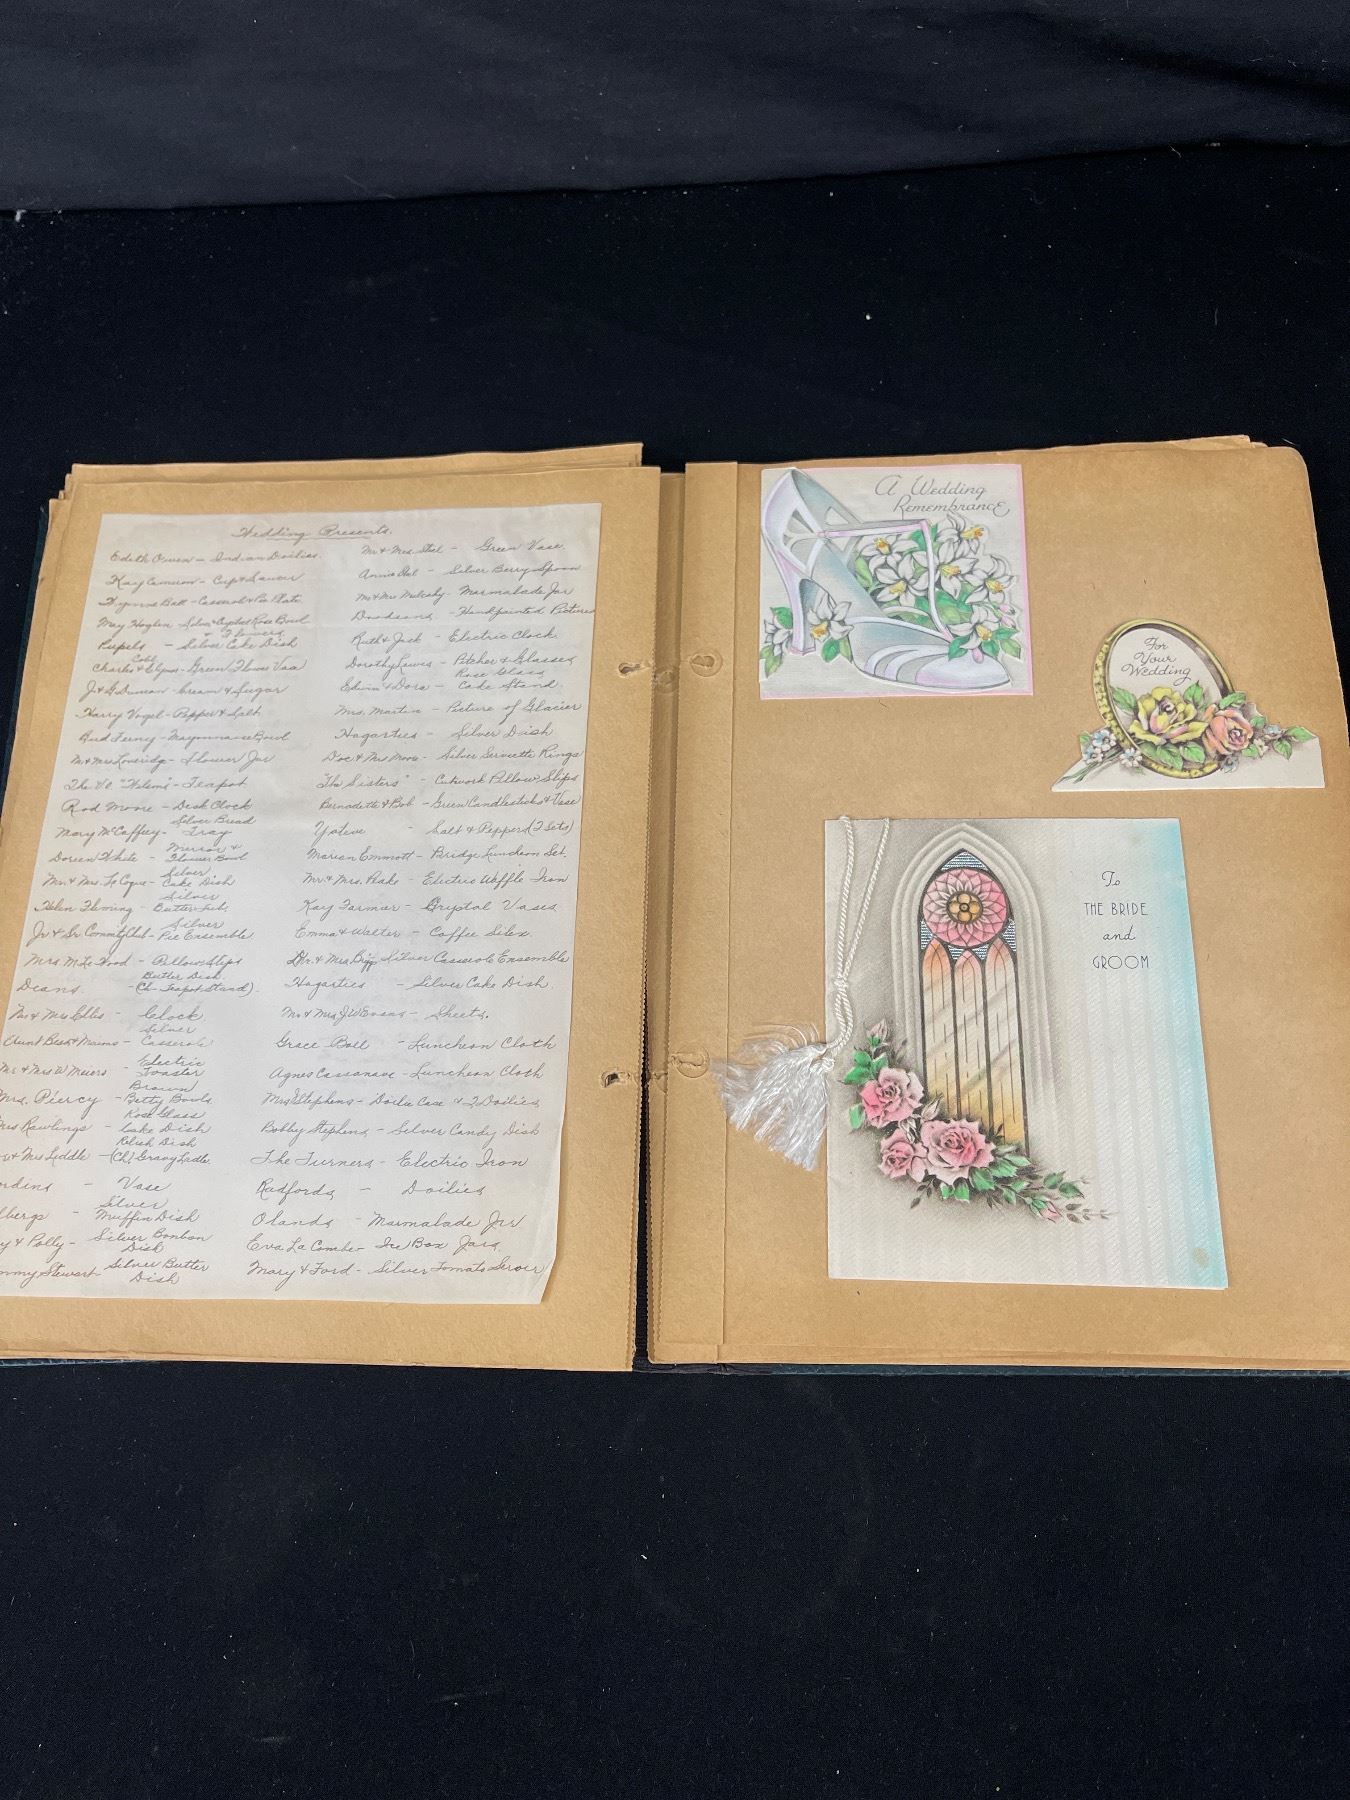 Wedding Presents.
Edith Owen - Indian Doilies.
Kay Cameron - Cup & Saucer
Wynne Ball - Casserole & Pie Plate.
May Hoglen Silver & Crystal Rose Bowl
& Flowers
Pupils - Silver Cake Dish
Cobb
Charles & - Green Flower Vase
J. & G. Duncan - Cream & Sugar
Harry Vogel - Pepper & Salt
Bud Ferney - Mayonnaise Bowl
Mr & Mrs Loveridge - Flower Jar
The "Helems" - Teapot
Rod Moore - Desk Clock
Silver Bread
Mary McCaffrey - Tray
Mirror &
Doreen White - Flower Bowl
Silver
Mr. & Mrs. Le Coque - Cake Dish
Silver
Helen Fleming - Butter Tub.
Silver
Jr & Sr Commty Club - Pie Ensemble
Mrs McLeHood - Pillow Slips
Butter Dish
Deans - (Ch. Teapot Stand).
Mr & Mrs Ellis - Clock
Silver
Aunt Bess & Maime - Casserole
Electric
Mr & Mrs W Meiers - Toaster
Brown
Mrs. Piercy - Betty Bowls
Rose Glass
Mrs Rawlings - Cake Dish
Relish Dish
& Mrs Liddle - (Ch) Gravy Ladle
- Vase
Silver
- Muffin Dish
& Polly - Silver Bonbon
Dish
Stewart - Silver Butter
Dish
Mr & Mrs Stul - Green Vase.
Annie Dal - Silver Berry Spoon
Mr & Mrs Mulcahy - Marmalade Jar
Davdsons - Handpainted Pictures
Ruth & Jack - Electric Clock
Dorothy Lewis - Pitcher & Glasses
Rose Glass
Edwin & Dora - Cake Stand.
Mrs. Martin - Picture of Glacier
Hogarties - Silver Dish
Doc & Mrs Moore - Silver Serviette Rings
"The Sisters" - Cutwork Pillow Slips
Bernadette & Bob - Green Candlesticks & Vase
Yoteve - Salt & Peppers (2 Sets)
Marian Emmott - Bridge Luncheon Set.
Mr & Mrs. Peake - Electric Waffle Iron
Kay Farmer - Crystal Vases
Emma & Walter - Coffee Silex
Mr. & Mrs. Bigg Silver Casserole Ensemble
Hogarties - Silver Cake Dish.
Mr & Mrs J W Evans - Sheets.
Grace Boll - Luncheon Cloth
Agnes Cassanave - Luncheon Cloth
Mrs Stephens - Doilie Case & 2 Doilies
Bobby Stephens - Silver Candy Dish
The Turners - Electric Iron
Radfords - Doilies
Olands - Marmalade Jar
Eva La Combe - Ice Box Jars.
Mary & Ford - Silver Tomato Server
A Wedding
Remembrance
For
Your
Wedding
To
THE BRIDE
and
GROOM